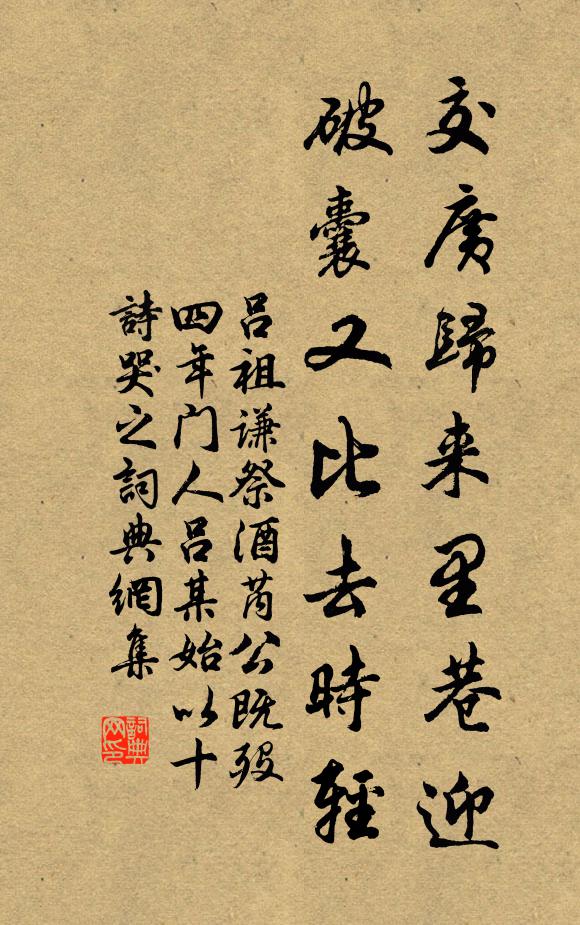 交廣歸来里巷迎
破囊又比去時輕
吕祖谦祭酒芮公既殁
四年门人吕某始以十
詩哭之詞典網集
詞典
网印